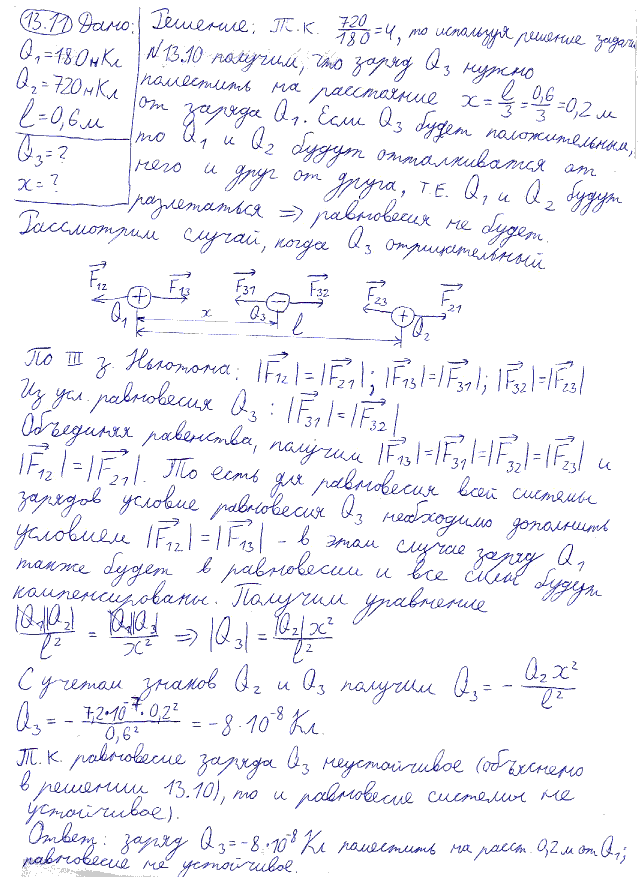 13.11 Дано: Решение: Т.к. 720/180 = 4, то используя решение задачи
Q₁=180нКл №13.10 получим, что заряд Q₃ нужно
Q₂=720нКл поместить на расстояние x = l/3 = 0,6/3 = 0,2 м
l=0,6м от заряда Q₁. Если Q₃ будет положительным,
Q₃=? то Q₁ и Q₂ будут отталкиватся от
x=? него и друг от друга, т.е. Q₁ и Q₂ будут
разлетаться ⇒ равновесия не будет.
Рассмотрим случай, когда Q₃ отрицательный
F₁₂ F₁₃ F₃₁ F₃₂ F₂₃ F₂₁
Q₁ + Q₃ − + Q₂
x
l
По III з. Ньютона: |F₁₂|=|F₂₁|; |F₁₃|=|F₃₁|; |F₃₂|=|F₂₃|
Из усл. равновесия Q₃: |F₃₁|=|F₃₂|
Объединяя равенства, получим |F₁₃|=|F₃₁|=|F₃₂|=|F₂₃| и
|F₁₂|=|F₂₁|. То есть для равновесия всей системы
зарядов условие равновесия Q₃ необходимо дополнить
условием |F₁₂|=|F₁₃| - в этом случае заряд Q₁
также будет в равновесии и все силы будут
компенсированы. Получим уравнение
|Q₁||Q₂|/l² = |Q₁||Q₃|/x² ⇒ |Q₃| = |Q₂|x²/l²
С учетом знаков Q₂ и Q₃ получим Q₃ = - Q₂x²/l²
Q₃ = - 7,2·10⁻⁷·0,2²/0,6² = -8·10⁻⁸ Кл.
Т.к. равновесие заряда Q₃ неустойчивое (объяснено
в решении 13.10), то и равновесие системы не
устойчивое).
Ответ: заряд Q₃=-8·10⁻⁸ Кл поместить на расст. 0,2м от Q₁;
равновесие не устойчивое.